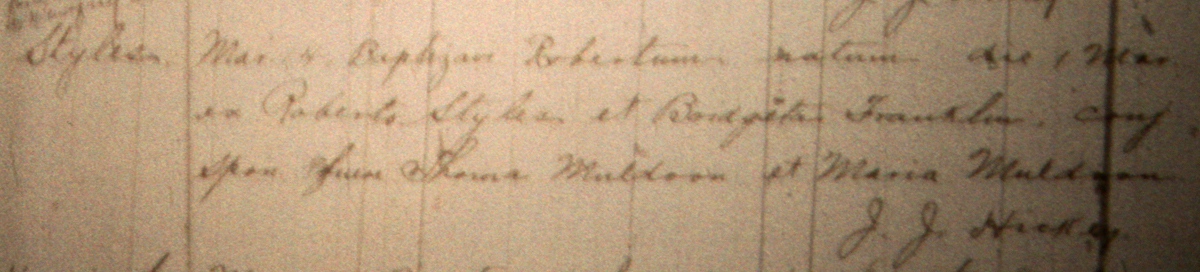 Styles Mar. 4. Baptizavi Robertum natum die 1 Mar
ex Roberto Styles et Bridgetta Franklin, conj
spon fuere Thoma Muldoon et Maria Muldoon
J. J. Hickey